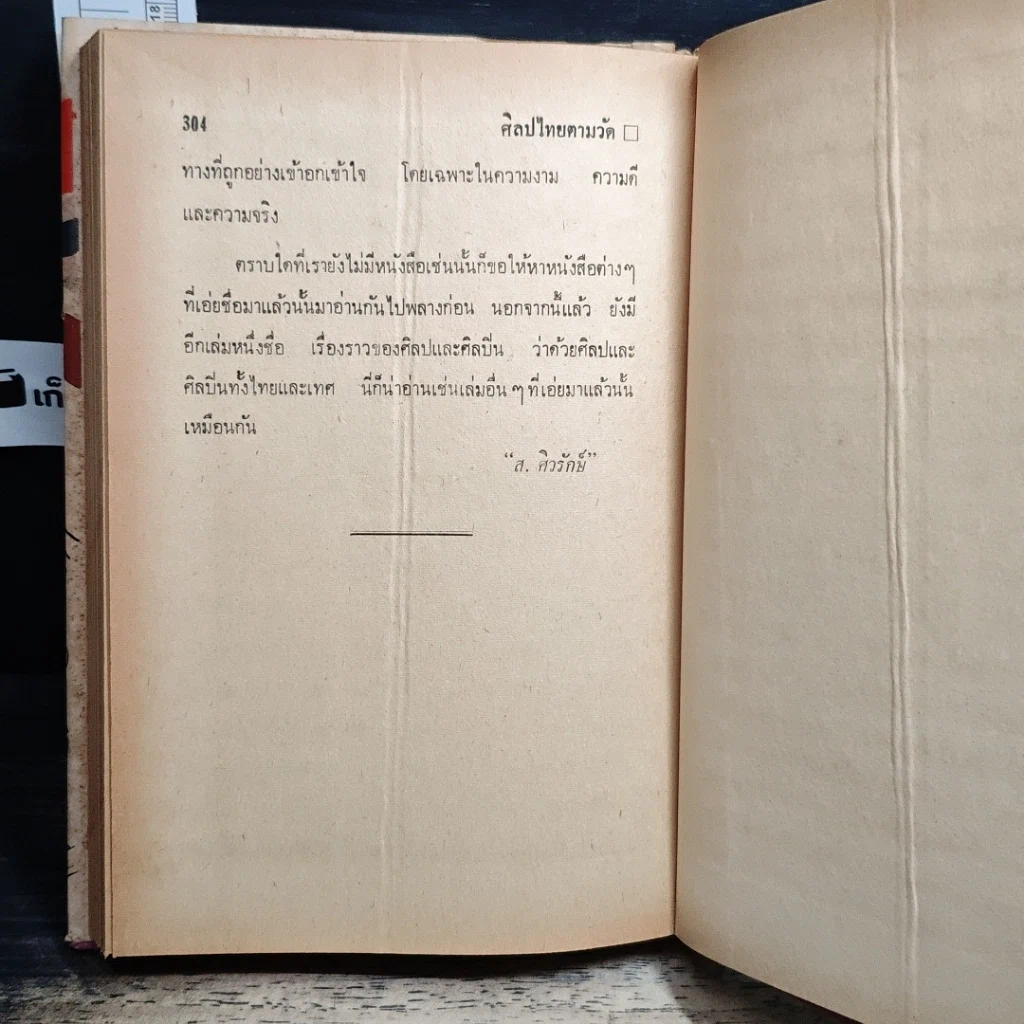 18
304 ศิลปไทยตามวัด □
ทางที่ถูกอย่างเข้าอกเข้าใจ โดยเฉพาะในความงาม ความดี
และความจริง
ตราบใดที่เรายังไม่มีหนังสือเช่นนั้นก็ขอให้หาหนังสือต่างๆ
ที่เอ่ยชื่อมาแล้วนั้นมาอ่านกันไปพลางก่อน นอกจากนี้แล้ว ยังมี
อีกเล่มหนึ่งชื่อ เรื่องราวของศิลปและศิลปิ่น ว่าด้วยศิลปและ
ศิลปิ่นทั้งไทยและเทศ นี่ก็น่าอ่านเช่นเล่มอื่น ๆ ที่เอ่ยมาแล้วนั้น
เหมือนกัน
“ส. ศิวรักษ์”
เก็